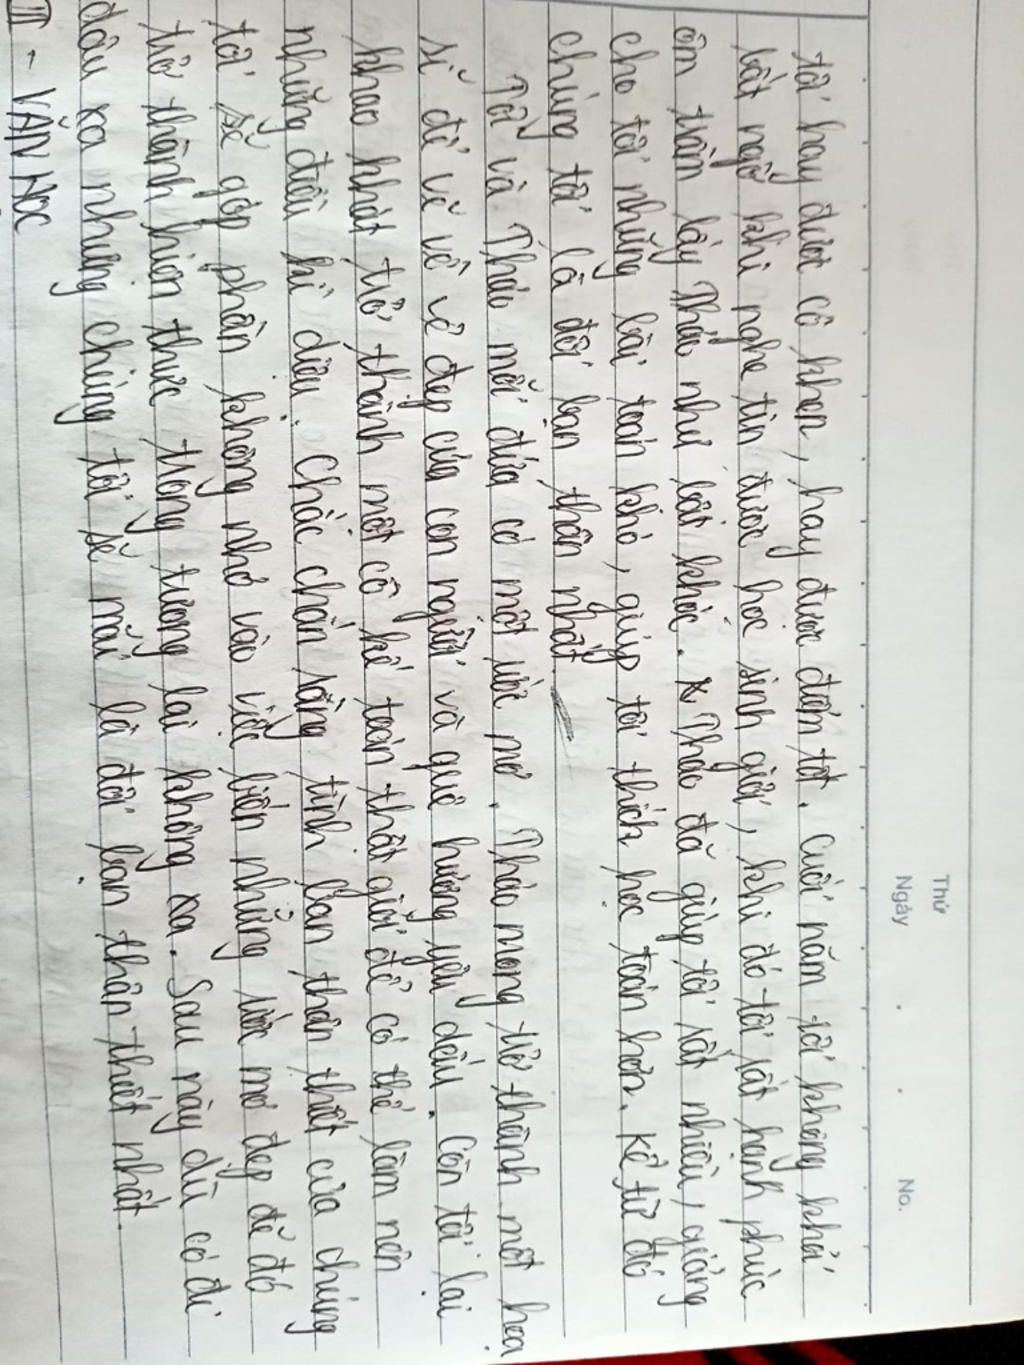 Thứ
Ngày . . No.
tôi hay được cô khen, hay được điểm tốt. Cuối năm tôi không khỏi
bất ngờ khi nghe tin được học sinh giỏi, khi đó tôi rất hạnh phúc
ôm trầm lấy Thảo như bật khóc. Thảo đã giúp tôi rất nhiều, giảng
cho tôi những bài toán khó, giúp tôi thích học toán hơn. Kể từ đó
chúng tôi là đôi bạn thân nhất.
Tôi và Thảo mỗi đứa có một ước mơ. Thảo mong trở thành một họa
sĩ để vẽ về vẻ đẹp của con người và quê hương yêu dấu. Còn tôi lại
khao khát trở thành một cô kế toán thật giỏi để có thể làm nên
những điều kì diệu. Chắc chắn rằng tình bạn thân thiết của chúng
tôi sẽ góp phần không nhỏ vào việc biến những ước mơ đẹp đẽ đó
trở thành hiện thực trong tương lai không xa. Sau này dù có đi
đâu xa nhưng chúng tôi sẽ mãi là đôi bạn thân thiết nhất.
II - VĂN HỌC